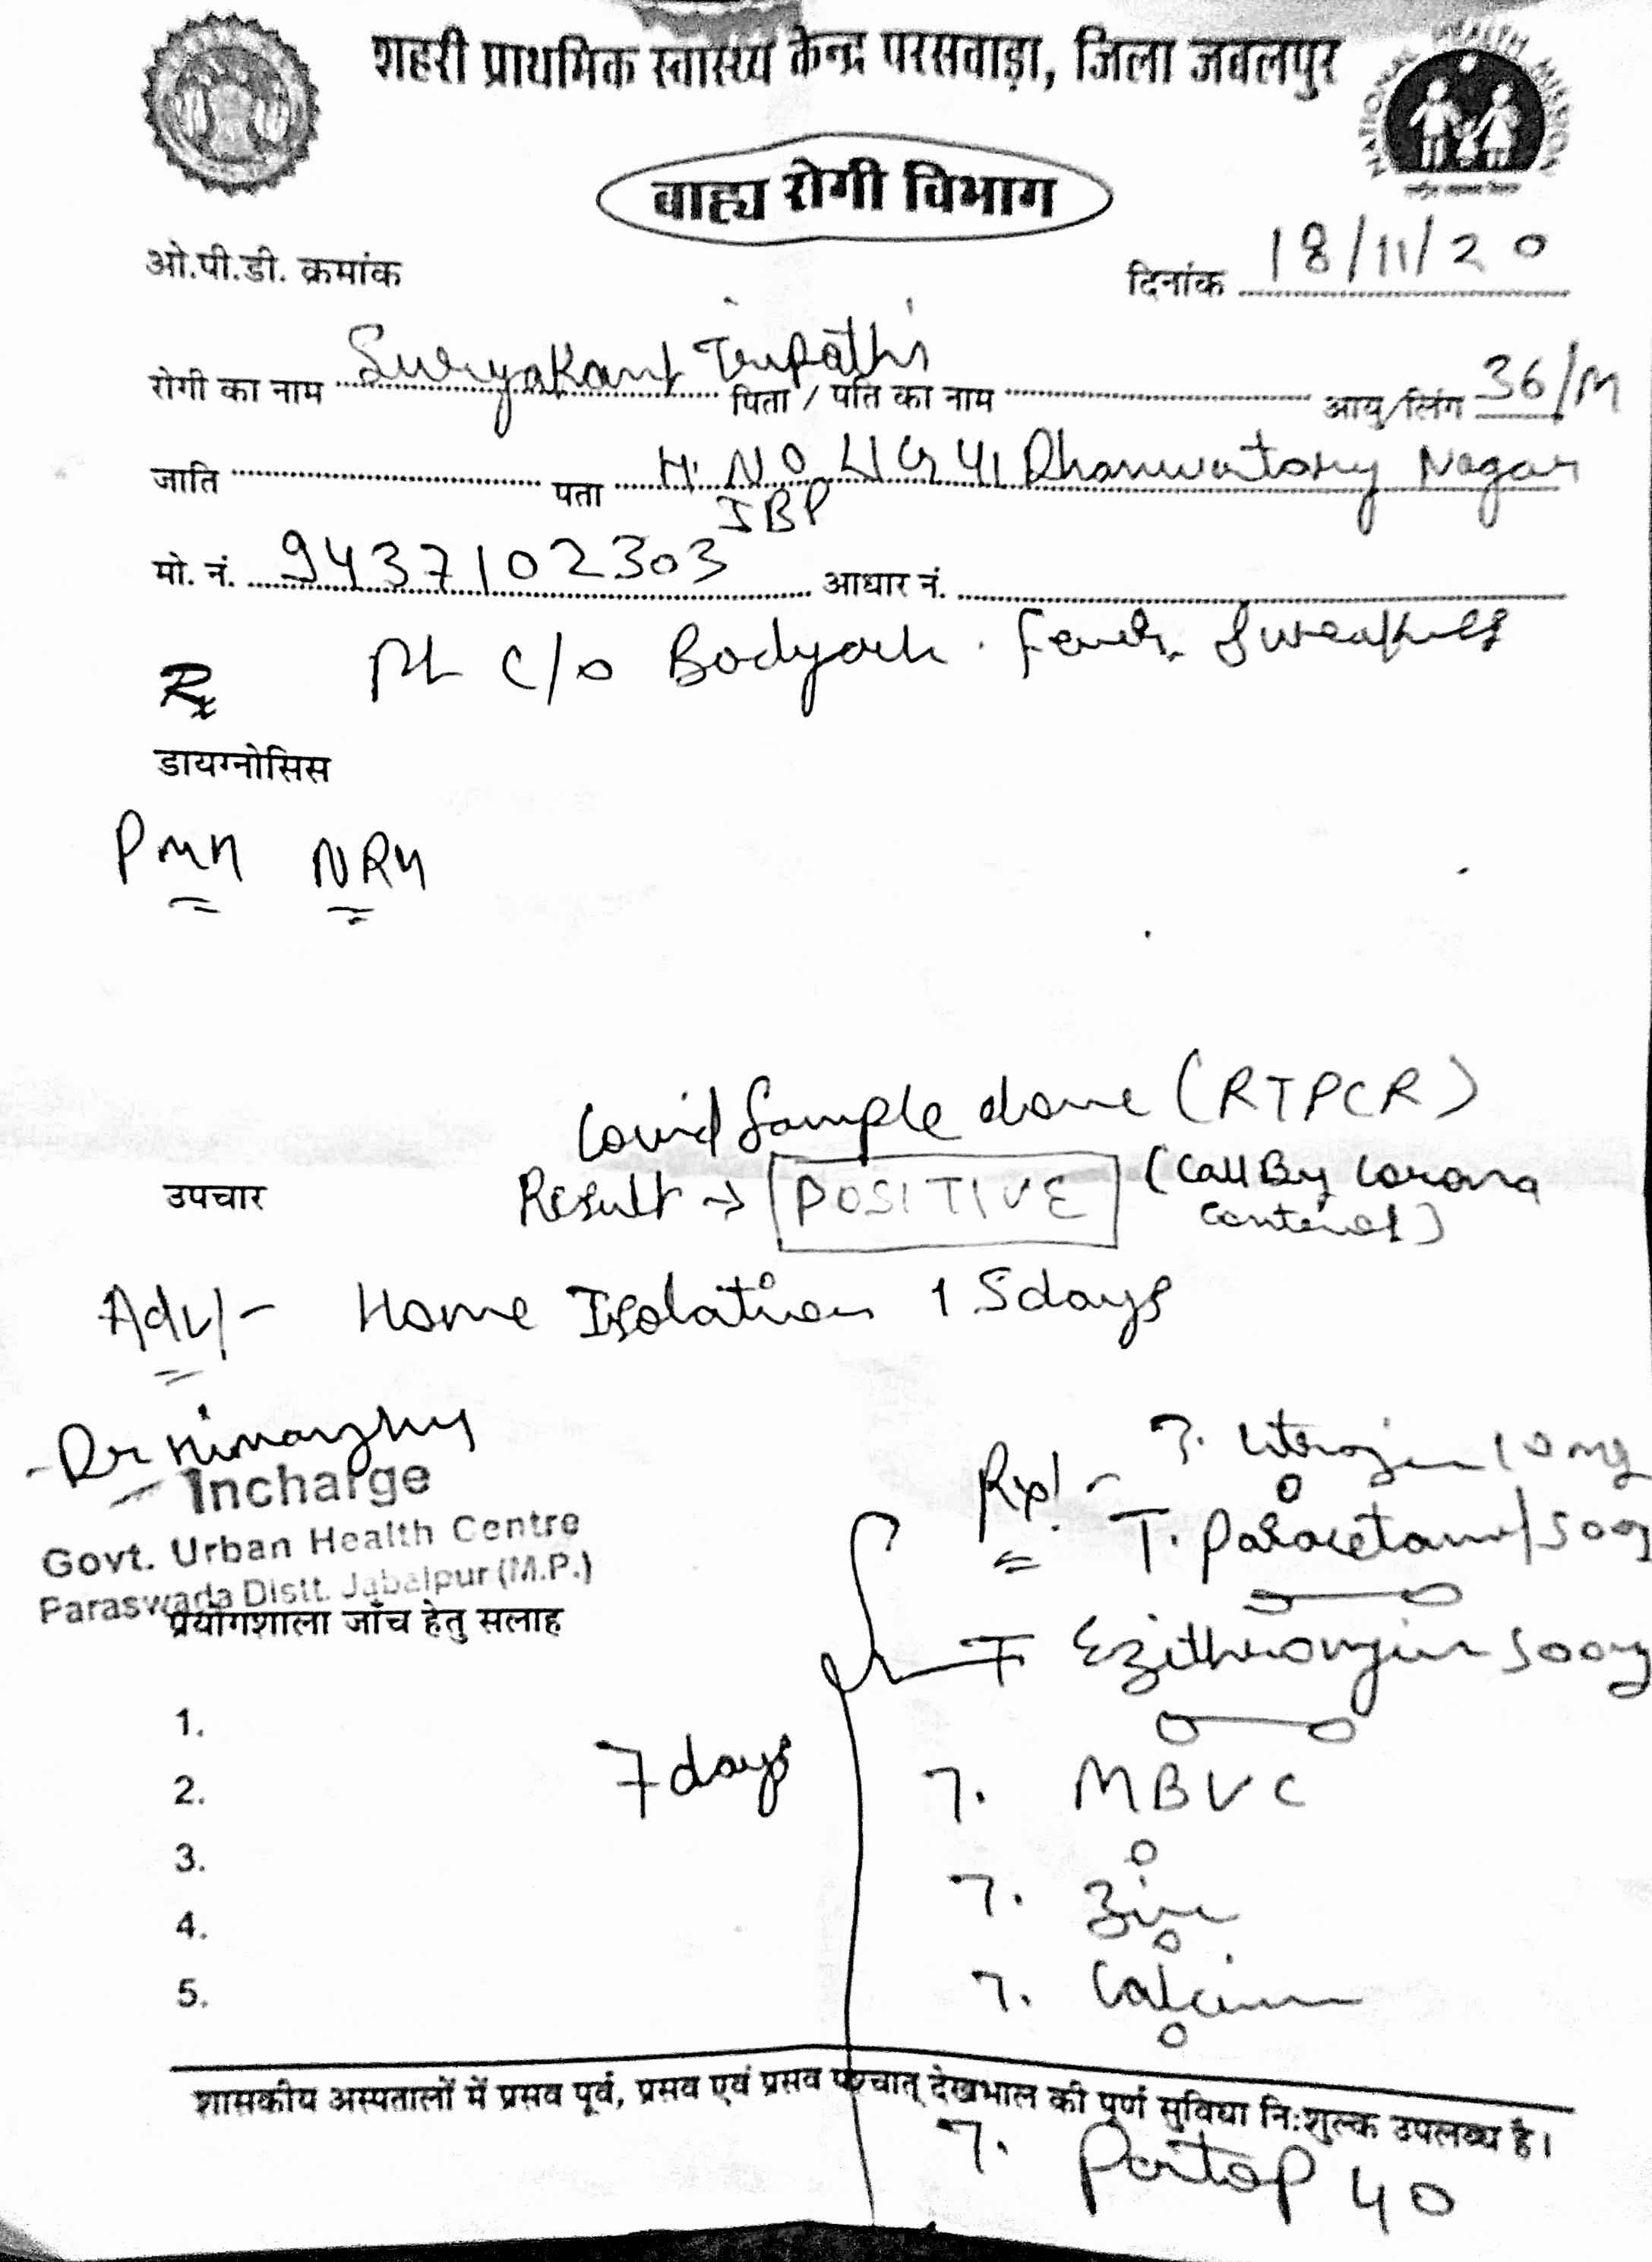 शहरी प्राथमिक स्वास्थ्य केन्द्र परसवाड़ा, जिला जबलपुर
NATIONAL HEALTH MISSION
बाह्य रोगी विभाग
ओ.पी.डी. क्रमांक दिनांक 18/11/20
रोगी का नाम Suryakant Tripathi पिता / पति का नाम आयु/लिंग 36/M
जाति पता H. NO. LIG 41 Dhanwantory Nagar
JBP
मो. नं. 9437102303 आधार नं.
Rx Pt c/o Bodyach. Fever &
डायग्नोसिस
Covid Sample done (RTPCR)
उपचार Result → POSITIVE (Call By Corona
Control)
Adv/- Home Isolation 15days
Dr Himanshu
Incharge
Govt. Urban Health Centre
Paraswada Distt. Jabalpur (M.P.)
प्रयोगशाला जाँच हेतु सलाह
Rx/- 10mg
T. Paracetamol 500
T Ezithromycin 500mg
1.
2.
3.
4.
5.
7 days
T. MBVC
T. Zinc
T. Calcium
शासकीय अस्पतालों में प्रसव पूर्व, प्रसव एवं प्रसव पश्चात् देखभाल की पूर्ण सुविधा नि:शुल्क उपलब्ध है।
T. Pantop 40